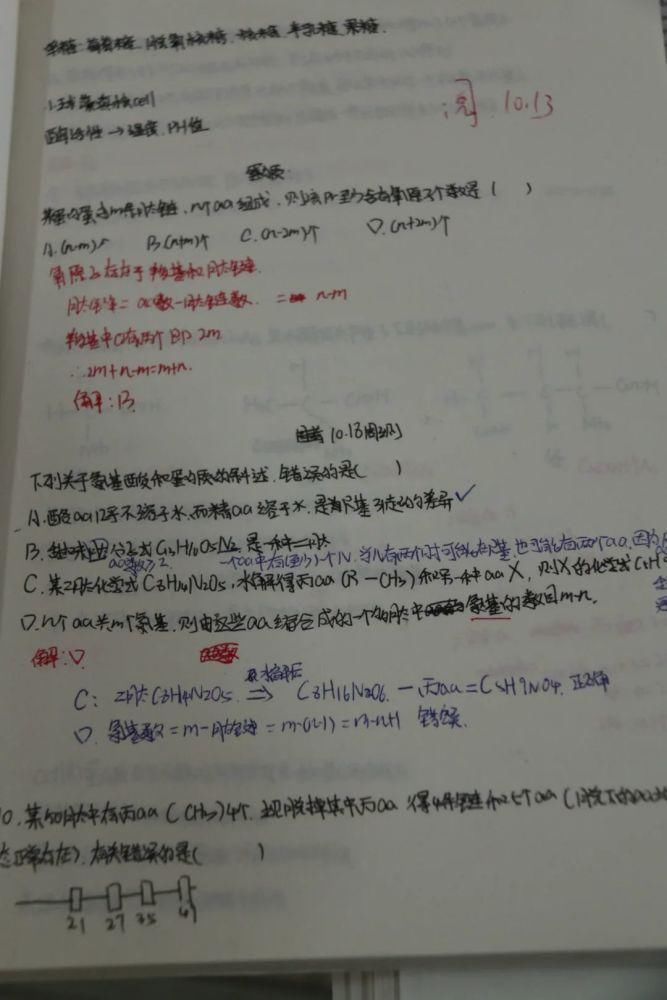 单糖:葡萄糖、脱氧核糖、核糖、半乳糖、果糖.
小球藻真核cell
酶活性→温度.PH值
10.13
蛋白质
某蛋白质由m条肽链,n个aa组成,则该Pr至少含有氧原子个数是( )
A.(n-m)个 B.(n+m)个 C.(n-2m)个 D.(n+2m)个
氧原子存在于羧基和肽键.
肽键=aa数-肽链数.= n-m
羧基中O有两个 即 2m
∴2m+n-m=m+n.
解:B.
10.13周测
下列关于氨基酸和蛋白质的叙述,错误的是( )
A.酸aa几乎不溶于水,而精aa溶于水,是有R基引起的差异✓
B. 分子式 是一种二肽
C. 某二肽化学式C8H14N2O5,水解得丙aa(R为-CH3)和另一种aa X,则X的化学式
D.n个aa共m个氨基.则由这些aa缩合成的一个多肽中氨基的数目m-n.
解:D
C: 二肽C8H14N2O5 水解后⇒ C8H16N2O6.-丙aa=C5H9NO4.正确
D. 氨基数=m-肽键=m-(n-1)=m-n+1 错误.
10. 某50肽中有丙aa(CH3)4个.现脱掉其中丙aa 得4条链和5个aa(脱下的aa
态正常存在).有关错误的是( )
21 27 35 49